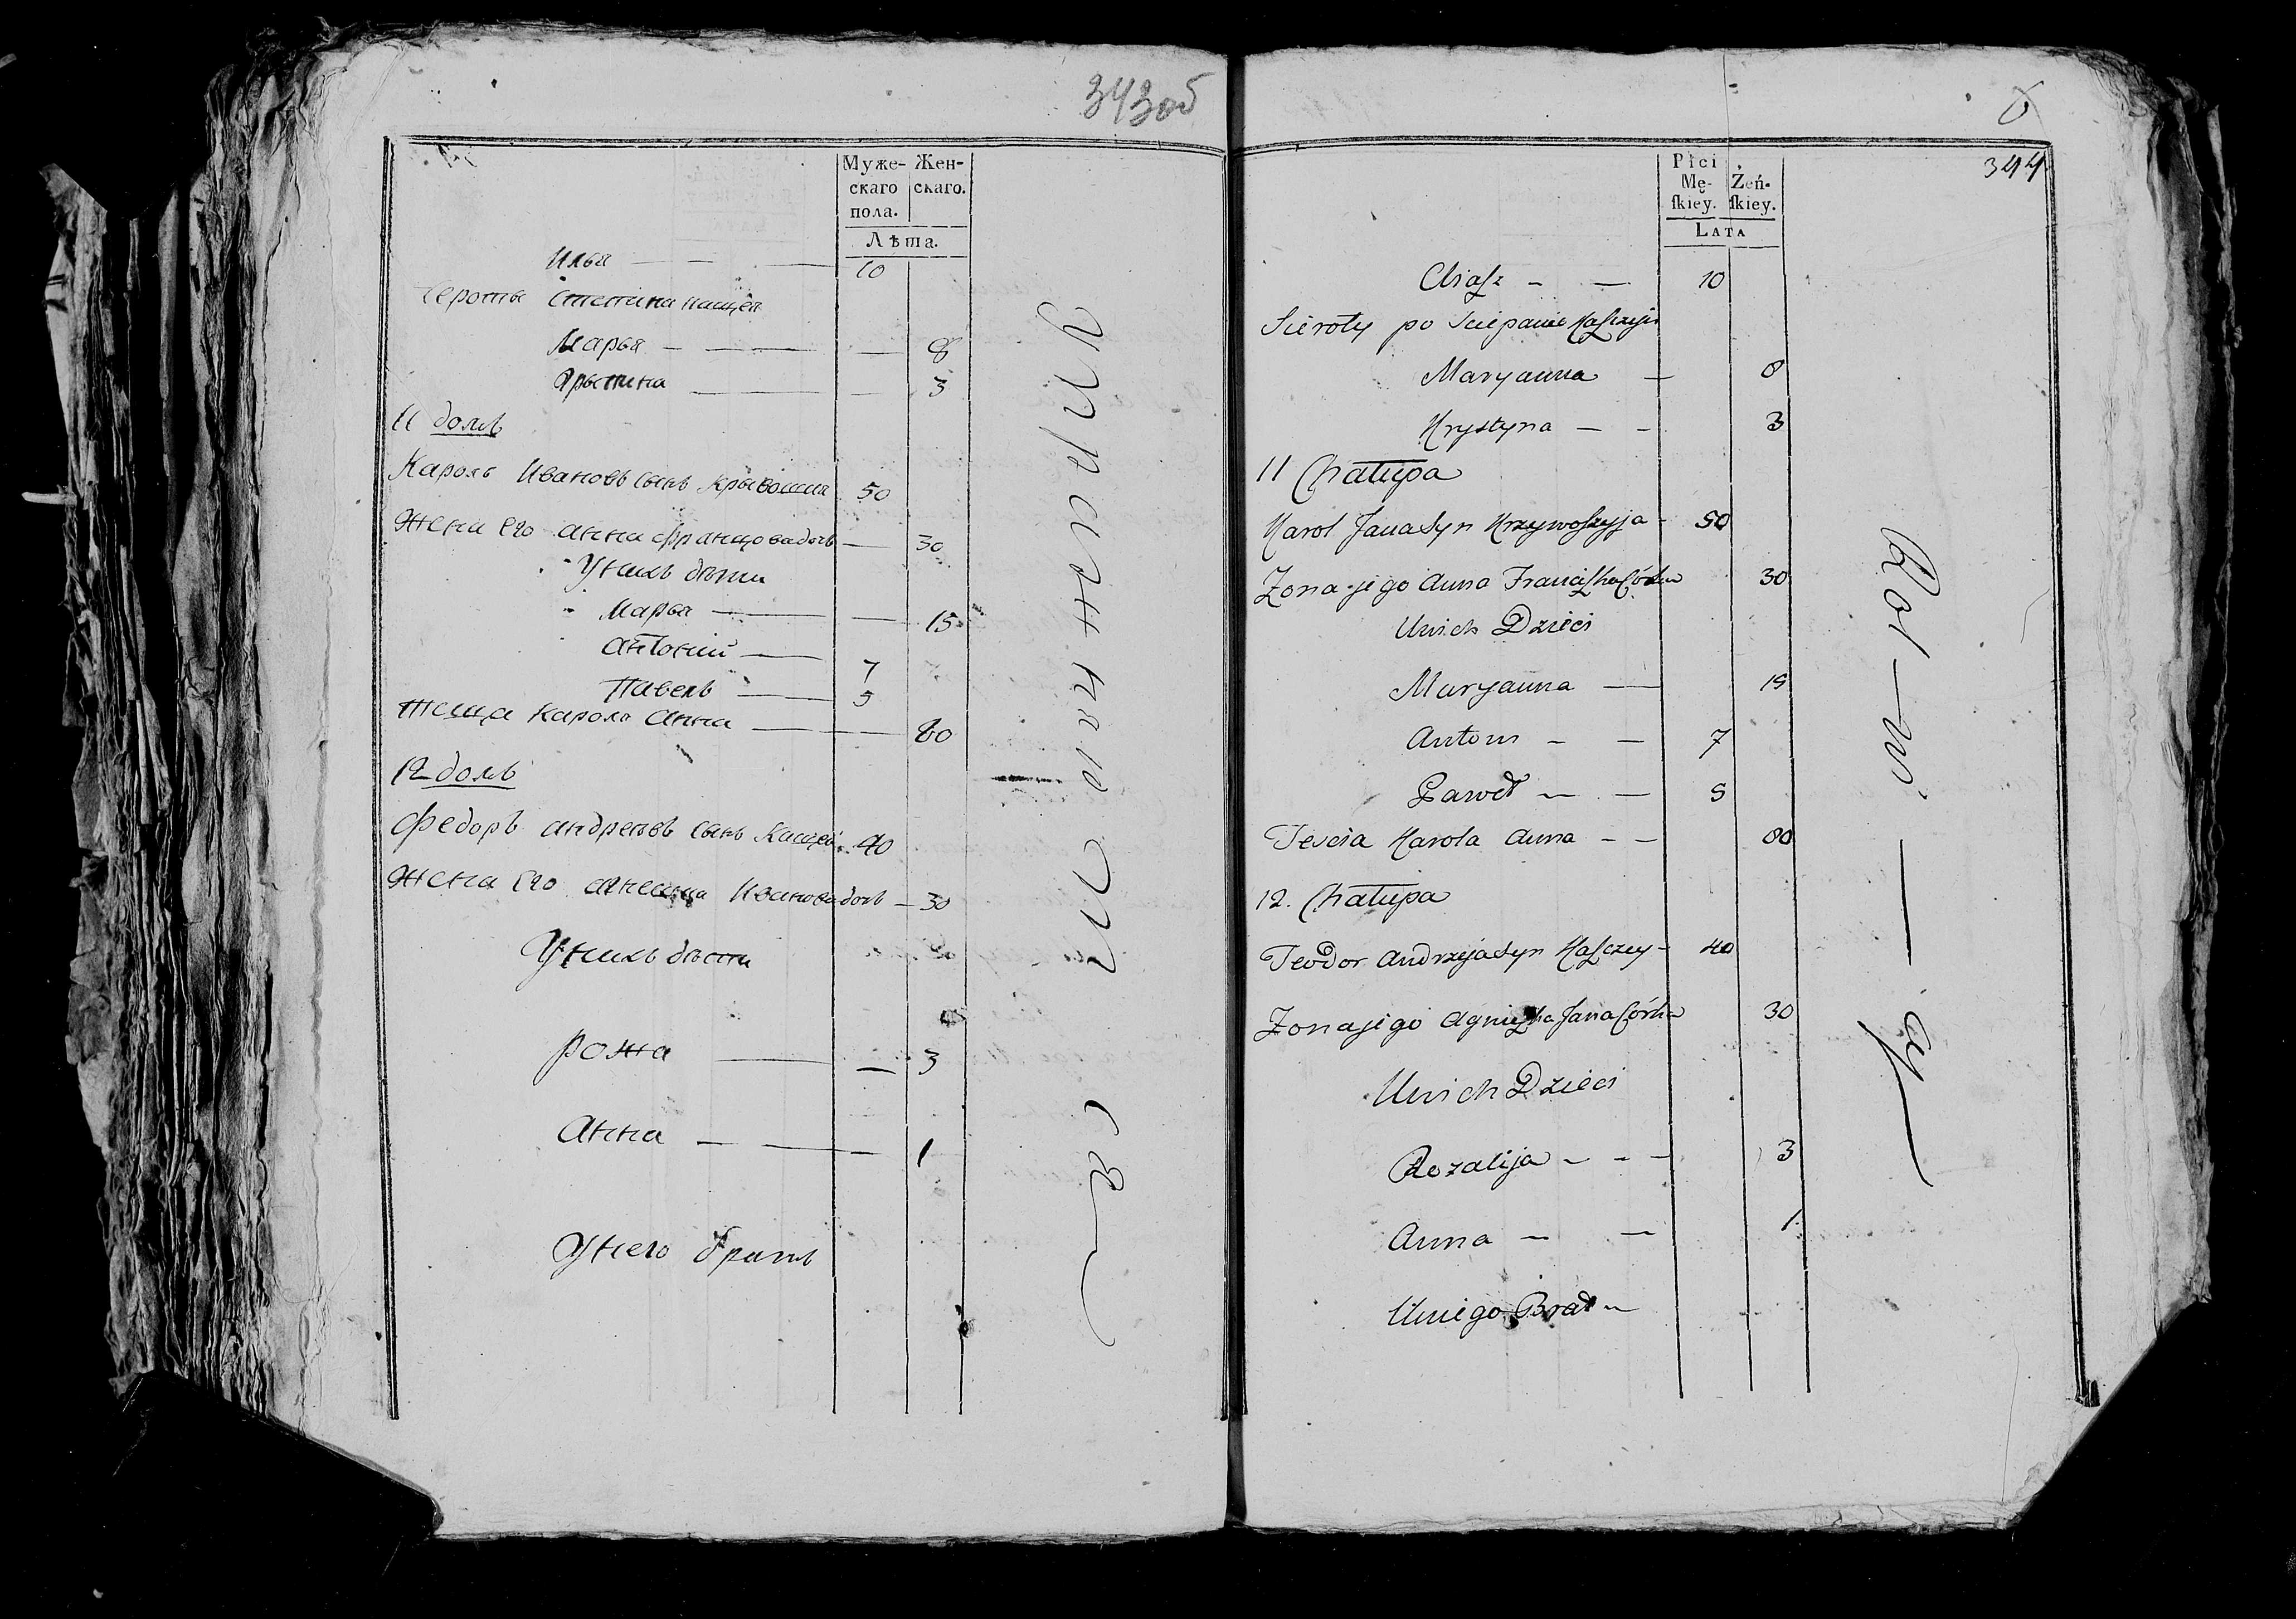 343об
Муже-
скаго
пола.
Жен-
скаго.
Лѣта.
Илья — — 10
Сероты Степана Кащея
Марья — — 8
Крыстина — — 3
11 домъ
Кароль Ивановъ сынъ Крывошия 50
Жена его Анна Францова дочь — 30
У нихъ дѣти
Марья — — 15
Антоний — 7
Павелъ — 5
Теща Кароля Анна — — 80
12 домъ
Федоръ Андреевъ сынъ Кащей 40
Жена его Ивановадочь — 30
У нихъ дѣти
Рожа — — 3
Анна — — 1
У него братъ
6
344
Płci
Mę-
ſkiey.
Żeń-
ſkiey.
LATA
Eliaſz – — 10
Sieroty po Sciepanie Kaſzczeju
Maryanna — 8
Krystyna — – 3
11 Chałupa
Karol Jana Syn Krzywoſzyja – 50
Zona jego Anna Franciſzka Córka 30
U nich Dzieci
Maryanna — 15
Antoni – — 7
Paweł — — 5
Teścia Karola Anna – – 80
12. Chałupa
Teodor Andrzeja Syn Kaſzczey – 40
Zona jego Agnieſzka Jana Córka 30
U nich Dzieci
Rozalija – – – 3
Anna – — 1
U niego Brat –